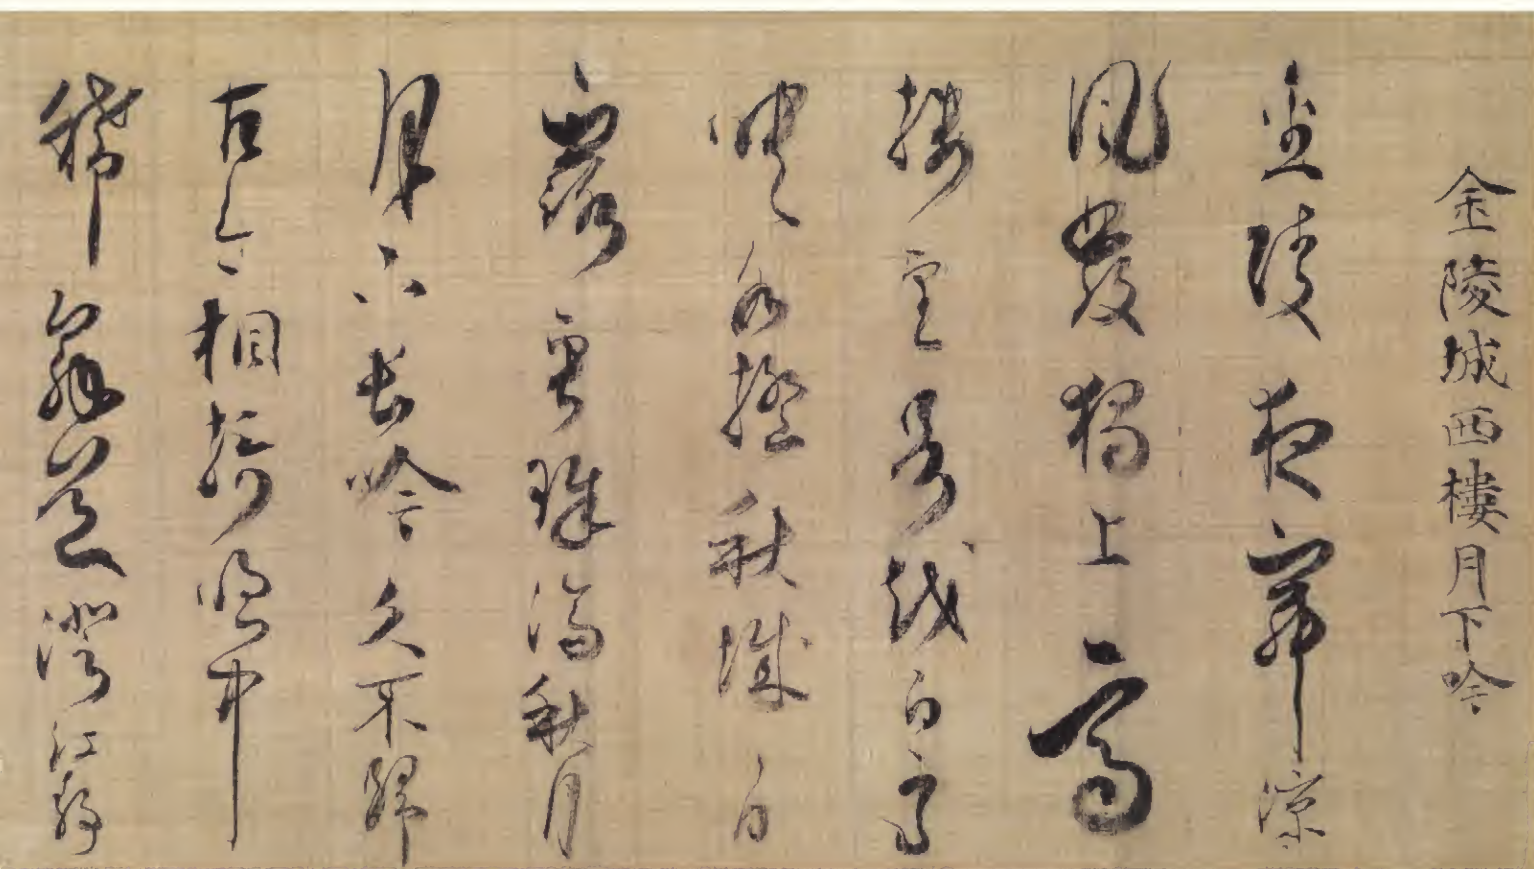 金陵城西樓月下吟
金陵夜寂涼
風發獨上高
樓望吳越白雲
映水搖秋城白
露垂珠滴秋月
月下長吟久不歸
古今相接眼中
稀解道澄江靜